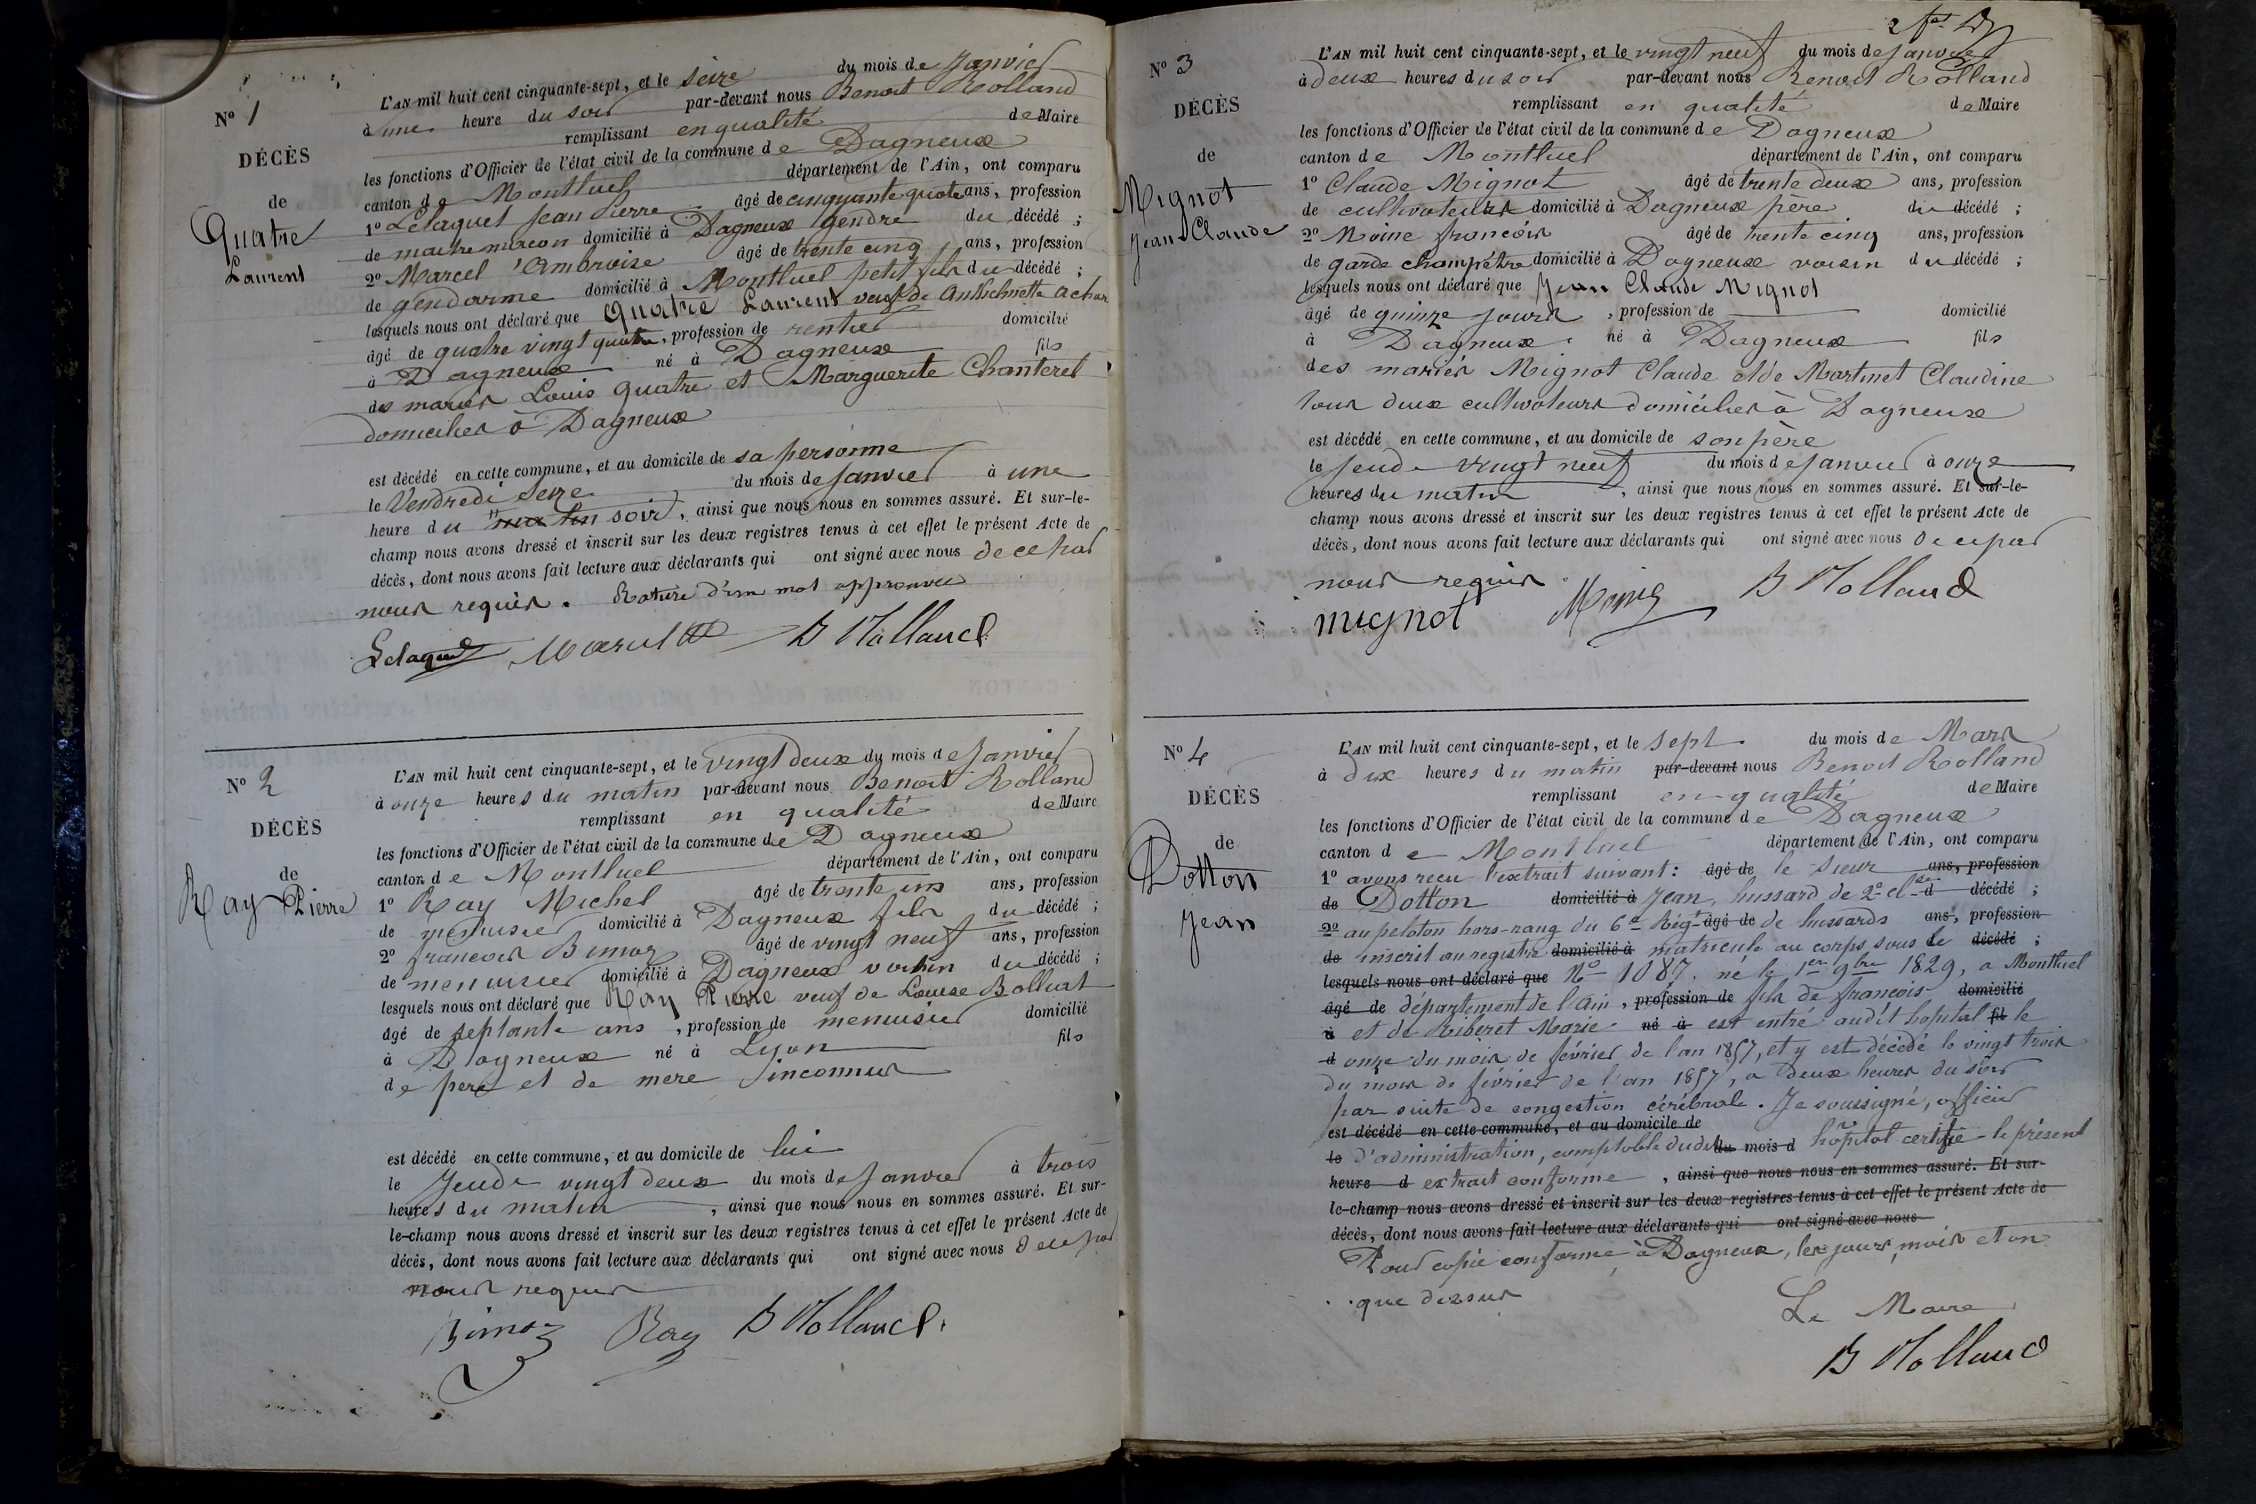 N° 1
DÉCÈS
de
Quatre
Laurent
L'AN mil huit cent cinquante-sept, et le seize du mois de Janvier
à une heure du soir par-devant nous Benoit Rolland
remplissant en qualité de Maire
les fonctions d'Officier de l'état civil de la commune de Dagneux
canton de Montluel département de l'Ain, ont comparu
1° Lelaquet Jean Pierre âgé de cinquante quatre ans, profession
de maitre macon domicilié à Dagneux gendre du décédé ;
2° Marcel Ambroise âgé de trente cinq ans, profession
de gendarme domicilié à Montluel petit fils du décédé ;
lesquels nous ont déclaré que Quatre Laurent veuf de
âgé de quatre vingt quatre, profession de rentier domicilié
à Dagneux né à Dagneux fils
des mariés Louis Quatre et Marguerite Chanterel
domicilies à Dagneux
est décédé en cette commune, et au domicile de sa personne
le Vendredi seize du mois de Janvier à une
heure du matin soir, ainsi que nous nous en sommes assuré. Et sur-le-
champ nous avons dressé et inscrit sur les deux registres tenus à cet effet le présent Acte de
décès, dont nous avons fait lecture aux déclarants qui ont signé avec nous de ce par
nous requis. Rature d'un mot approuvée
Lelaquet Marcel B Rolland
N° 2
DÉCÈS
de
Ray Pierre
L'AN mil huit cent cinquante-sept, et le vingt deux du mois de Janvier
à onze heures du matin par-devant nous Benoit Rolland
remplissant en qualité de Maire
les fonctions d'Officier de l'état civil de la commune de Dagneux
canton de Montluel département de l'Ain, ont comparu
1° Ray Michel âgé de trente ans, profession
de menuisier domicilié à Dagneux fils du décédé ;
2° francois Bimoz âgé de vingt neuf ans, profession
de menuisier domicilié à Dagneux voisin du décédé ;
lesquels nous ont déclaré que Ray Pierre veuf de Louise Bolluat
âgé de septante ans, profession de menuisier domicilié
à Dagneux né à Lyon fils
de pere et de mere inconnus
est décédé en cette commune, et au domicile de lui
le Jeudi vingt deux du mois de Janvier à trois
heures du matin, ainsi que nous nous en sommes assuré. Et sur-
le-champ nous avons dressé et inscrit sur les deux registres tenus à cet effet le présent Acte de
décès, dont nous avons fait lecture aux déclarants qui ont signé avec nous de ce par
nous requis
Bimoz Ray B Rolland
N° 3
DÉCÈS
de
Mignot
Jean Claude
L'AN mil huit cent cinquante-sept, et le vingt neuf du mois de Janvier
à deux heures du soir par-devant nous Benoit Rolland
remplissant en qualité de Maire
les fonctions d'Officier de l'état civil de la commune de Dagneux
canton de Montluel département de l'Ain, ont comparu
1° Claude Mignot âgé de trente deux ans, profession
de cultivateur domicilié à Dagneux père du décédé ;
2° Moine francois âgé de trente cinq ans, profession
de garde champêtre domicilié à Dagneux voisin du décédé ;
lesquels nous ont déclaré que Jean Claude Mignot
âgé de quinze jours, profession de domicilié
à Dagneux né à Dagneux fils
des mariés Mignot Claude et de Martinet Claudine
tous deux cultivateurs domiciliés à Dagneux
est décédé en cette commune, et au domicile de son père
le Jeudi vingt neuf du mois de Janvier à onze
heures du matin, ainsi que nous nous en sommes assuré. Et sur-le-
champ nous avons dressé et inscrit sur les deux registres tenus à cet effet le présent Acte de
décès, dont nous avons fait lecture aux déclarants qui ont signé avec nous de ce par
nous requis
mignot Moine B Rolland
N° 4
DÉCÈS
de
Dotton
Jean
L'AN mil huit cent cinquante-sept, et le sept du mois de Mars
à dix heures du matin par-devant nous Benoit Rolland
remplissant en qualité de Maire
les fonctions d'Officier de l'état civil de la commune de Dagneux
canton de Montluel département de l'Ain, ont comparu
1° avons recu l'extrait suivant : âgé de le sieur ans, profession
de Dotton domicilié à Jean, hussard de 2e clse d décédé ;
2° au peloton hors-rang du 6e Régt âgé de de hussards ans, profession
de inscrit au registre domicilié à matricule au corps sous le décédé ;
lesquels nous ont déclaré que No 1087. né le 1er 9bre 1829, a Montluel
âgé de département de l'Ain, profession de fils de francois domicilié
à et de Riberet Marie né à est entré audit hopital fil le
d onze du mois de février de l'an 1857, et y est décédé le vingt trois
du mois de février de l'an 1857, a deux heures du soir
par suite de congestion cérébrale. Je soussigné, officier
est décédé en cette commune, et au domicile de
le d'administration, comptable dudit du mois d hôpital certifie le présent
heure d extrait conforme, ainsi que nous nous en sommes assuré. Et sur-
le-champ nous avons dressé et inscrit sur les deux registres tenus à cet effet le présent Acte de
décès, dont nous avons fait lecture aux déclarants qui ont signé avec nous
Pour copie conforme à Dagneux, les jours, mois et an
que dessus
Le Maire
B Rolland